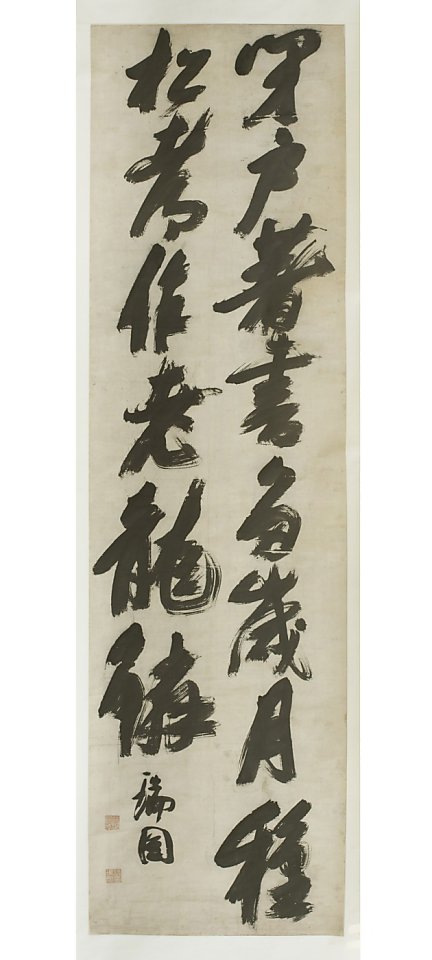 閉戶著書多歲月種
松皆作老龍鱗
瑞圖